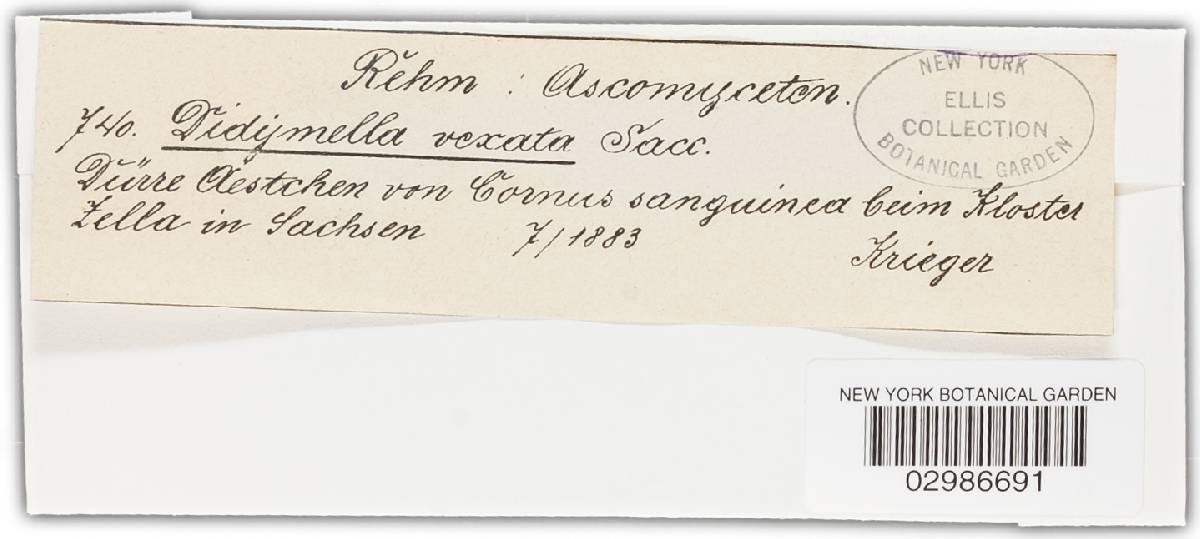 Rehm : Ascomyceten.
740. Didymella vexata Sacc.
Dürre Aestchen von Cornus sanguinea beim Kloster
Zella in Sachsen 7/1883
Krieger
NEW YORK
ELLIS
COLLECTION
BOTANICAL GARDEN
NEW YORK BOTANICAL GARDEN
02986691